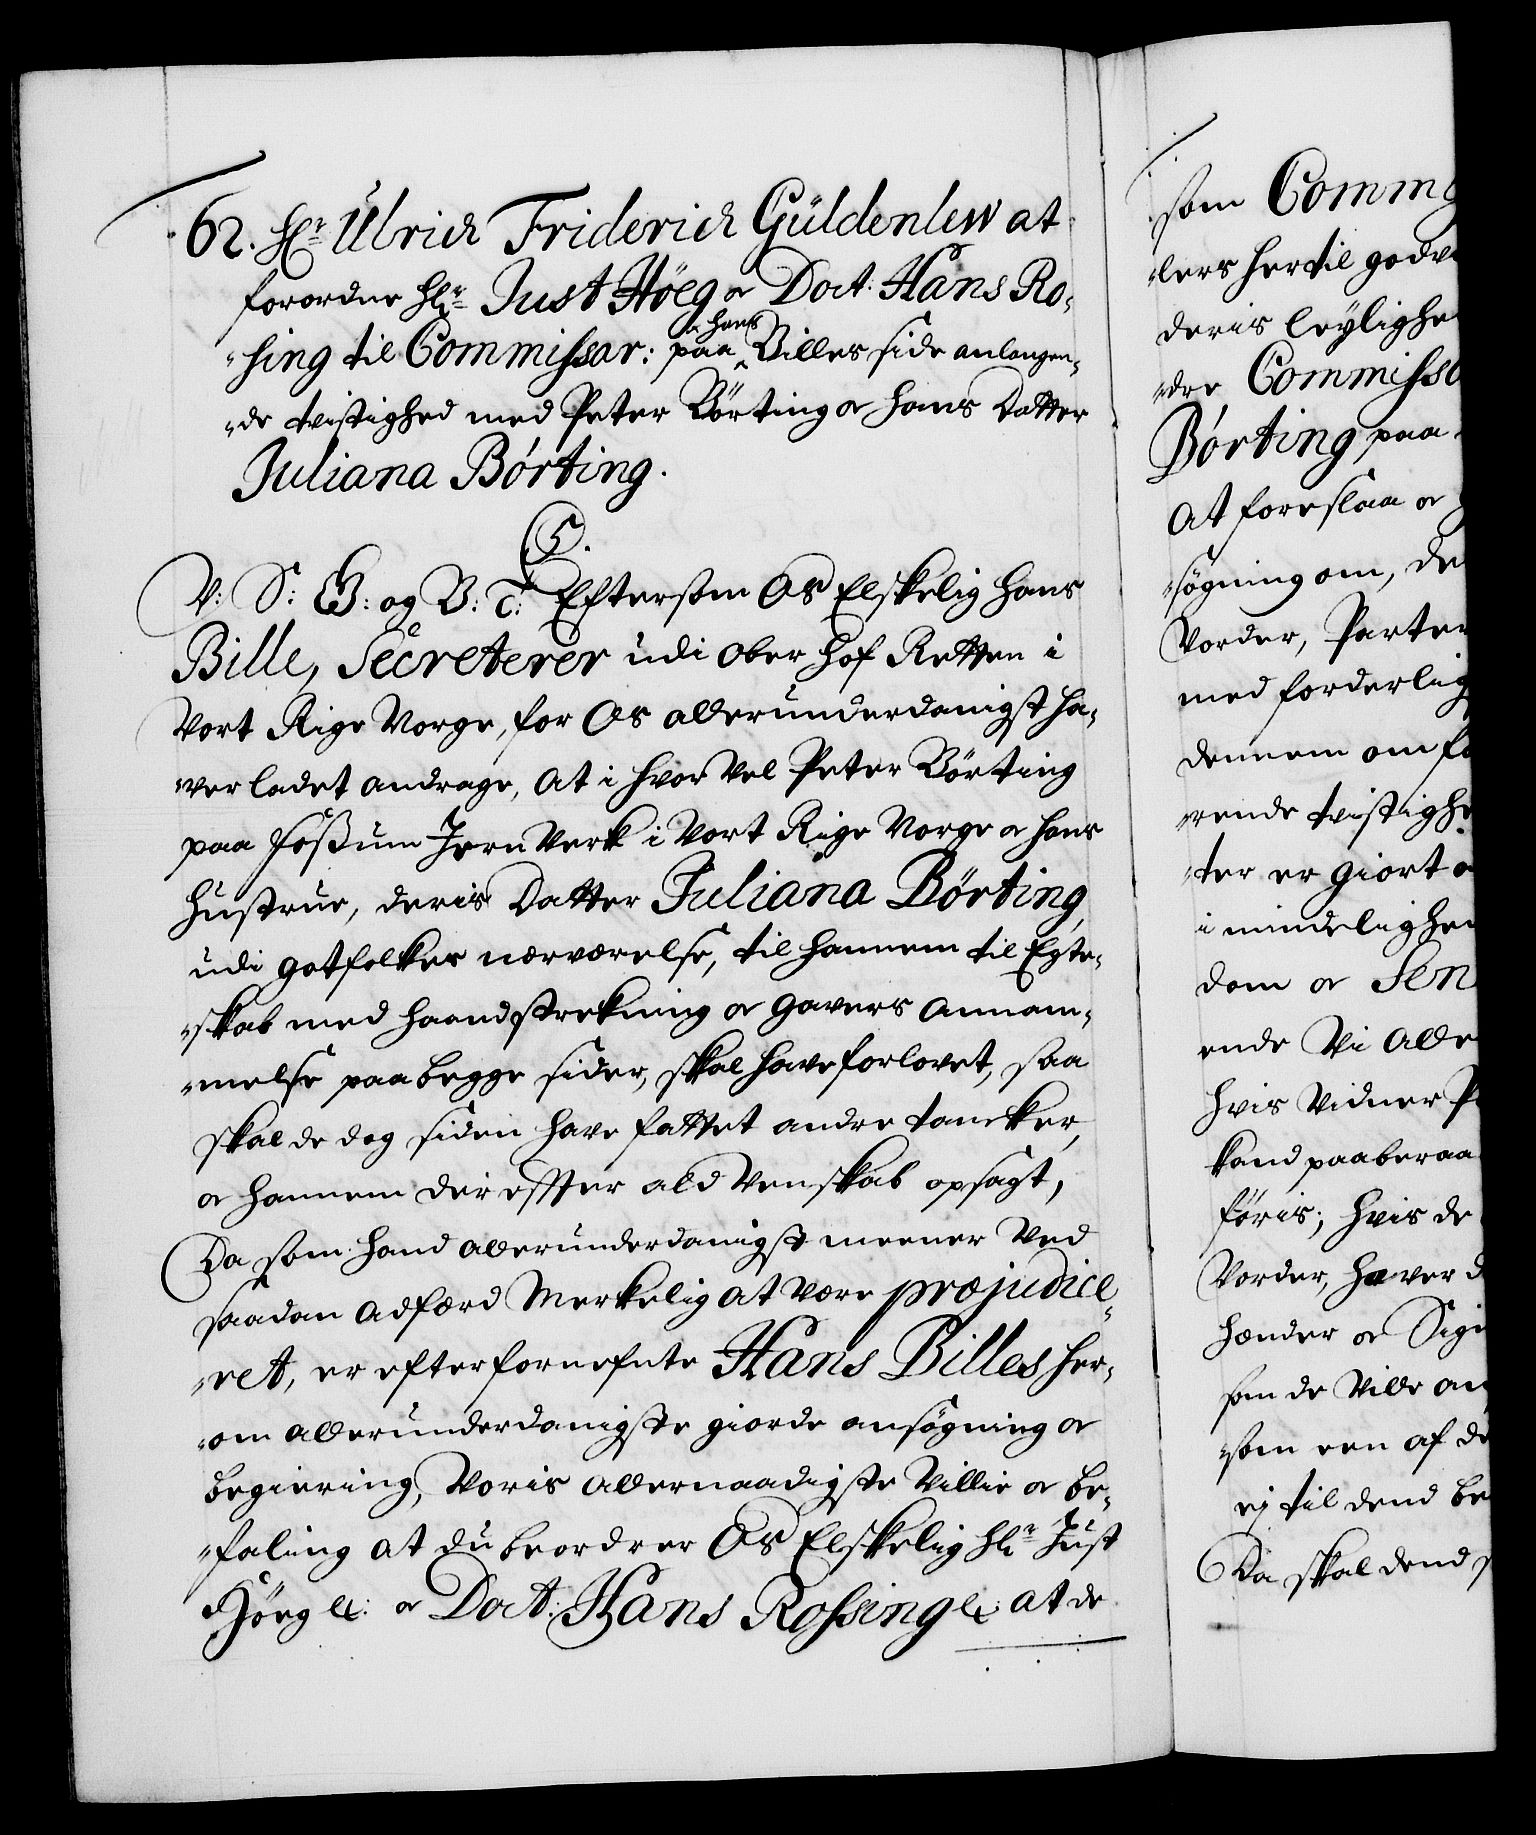 62. Hr. Ulrich Friderich Güldenlew at
forordne Hr. Just Höeg oc Doct: Hans Ro-
sing til Commissar: paa hans Billes side anlangen-
de tvistighed med Peter Börting oc hans Datter
Juliana Börting.
C5.
V: S: G: og V: T: Eftersom Os Elskelig Hans
Bille, Secreterer udi Ober Hof Retten i
Vort Rige Norge, for Os allerunderdanigst ha-
ver ladet andrage, at i hvor vel Peter Börting
paa Foßum Jern Verk i Vort Rige Norge oc hans
Hustrue, deris Datter Juliana Börting
udi Gotfolkes nærværelse, til hannem til Egte-
skab med haandstrekning oc gavers annam-
melse paa begge sider, skal have forlovet, saa
skal de dog siden have fattet andre tancker,
oc hannem der effter ald Venskab opsagt,
Da som hand allerunderdanigst meener ved
saadan adfærd Merkelig at være præjudice-
ret, er efter fornefnte Hans Billes her-
om allerunderdanigste giorde ansøgning oc
begiering, Voris allernaadigste Villie oc be-
faling at du beordrer Os Elskelig Hr. Just
Höeg &: oc Doct: Hans Rosing &: at de
som Comm
lers hertil godv
deris leylighe
dre Commisso
Börting paa
at foreslaa oc
søgning om, de
Vorder, Parter
med forderlig
dennem om f
rende tvistighe
ter er giort o
i mindelighe
dom oc Sen
ende Vi alle
hvis Vidner P
kand paaberaa
føris; hvis de
Vorder, haver d
hænder oc Sig
som de Ville an
som een af de
ej til dend be
Da skal dend s